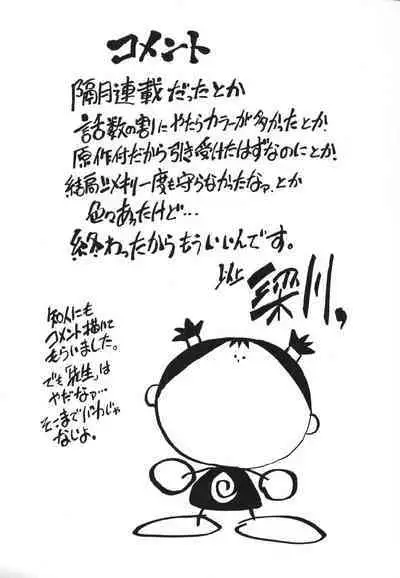 コメント
隔月連載だったとか
話数の割にやたらカラーが多かったとか
原作付だから引き受けたはずなのにとか
結局〆メキリ一度も守らなかったなァ、とか
色々あったけど…
終わったからもういいんです。
以上 梁川、
知人にも
コメント描いて
もらいました。
でも「先生」は
やだなァ…
そこまで じゃ
ないよ。